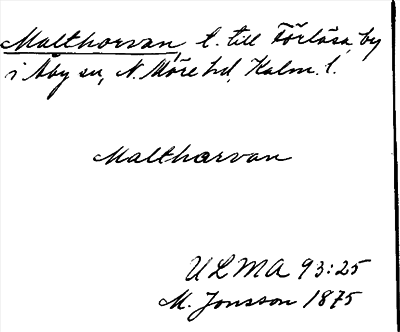 Malthorvan, t. till Förlösa by
i Åby sn, N. Möre hd, Kalm. l.
Maltharvan
ULMA 93:25
M. Jonsson 1875